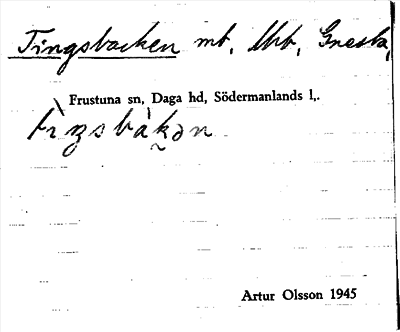 Tingsbacken mt, Mrb, Gnesta,
Frustuna sn, Daga hd, Södermanlands l,.
tìŋsbàkən
Artur Olsson 1945